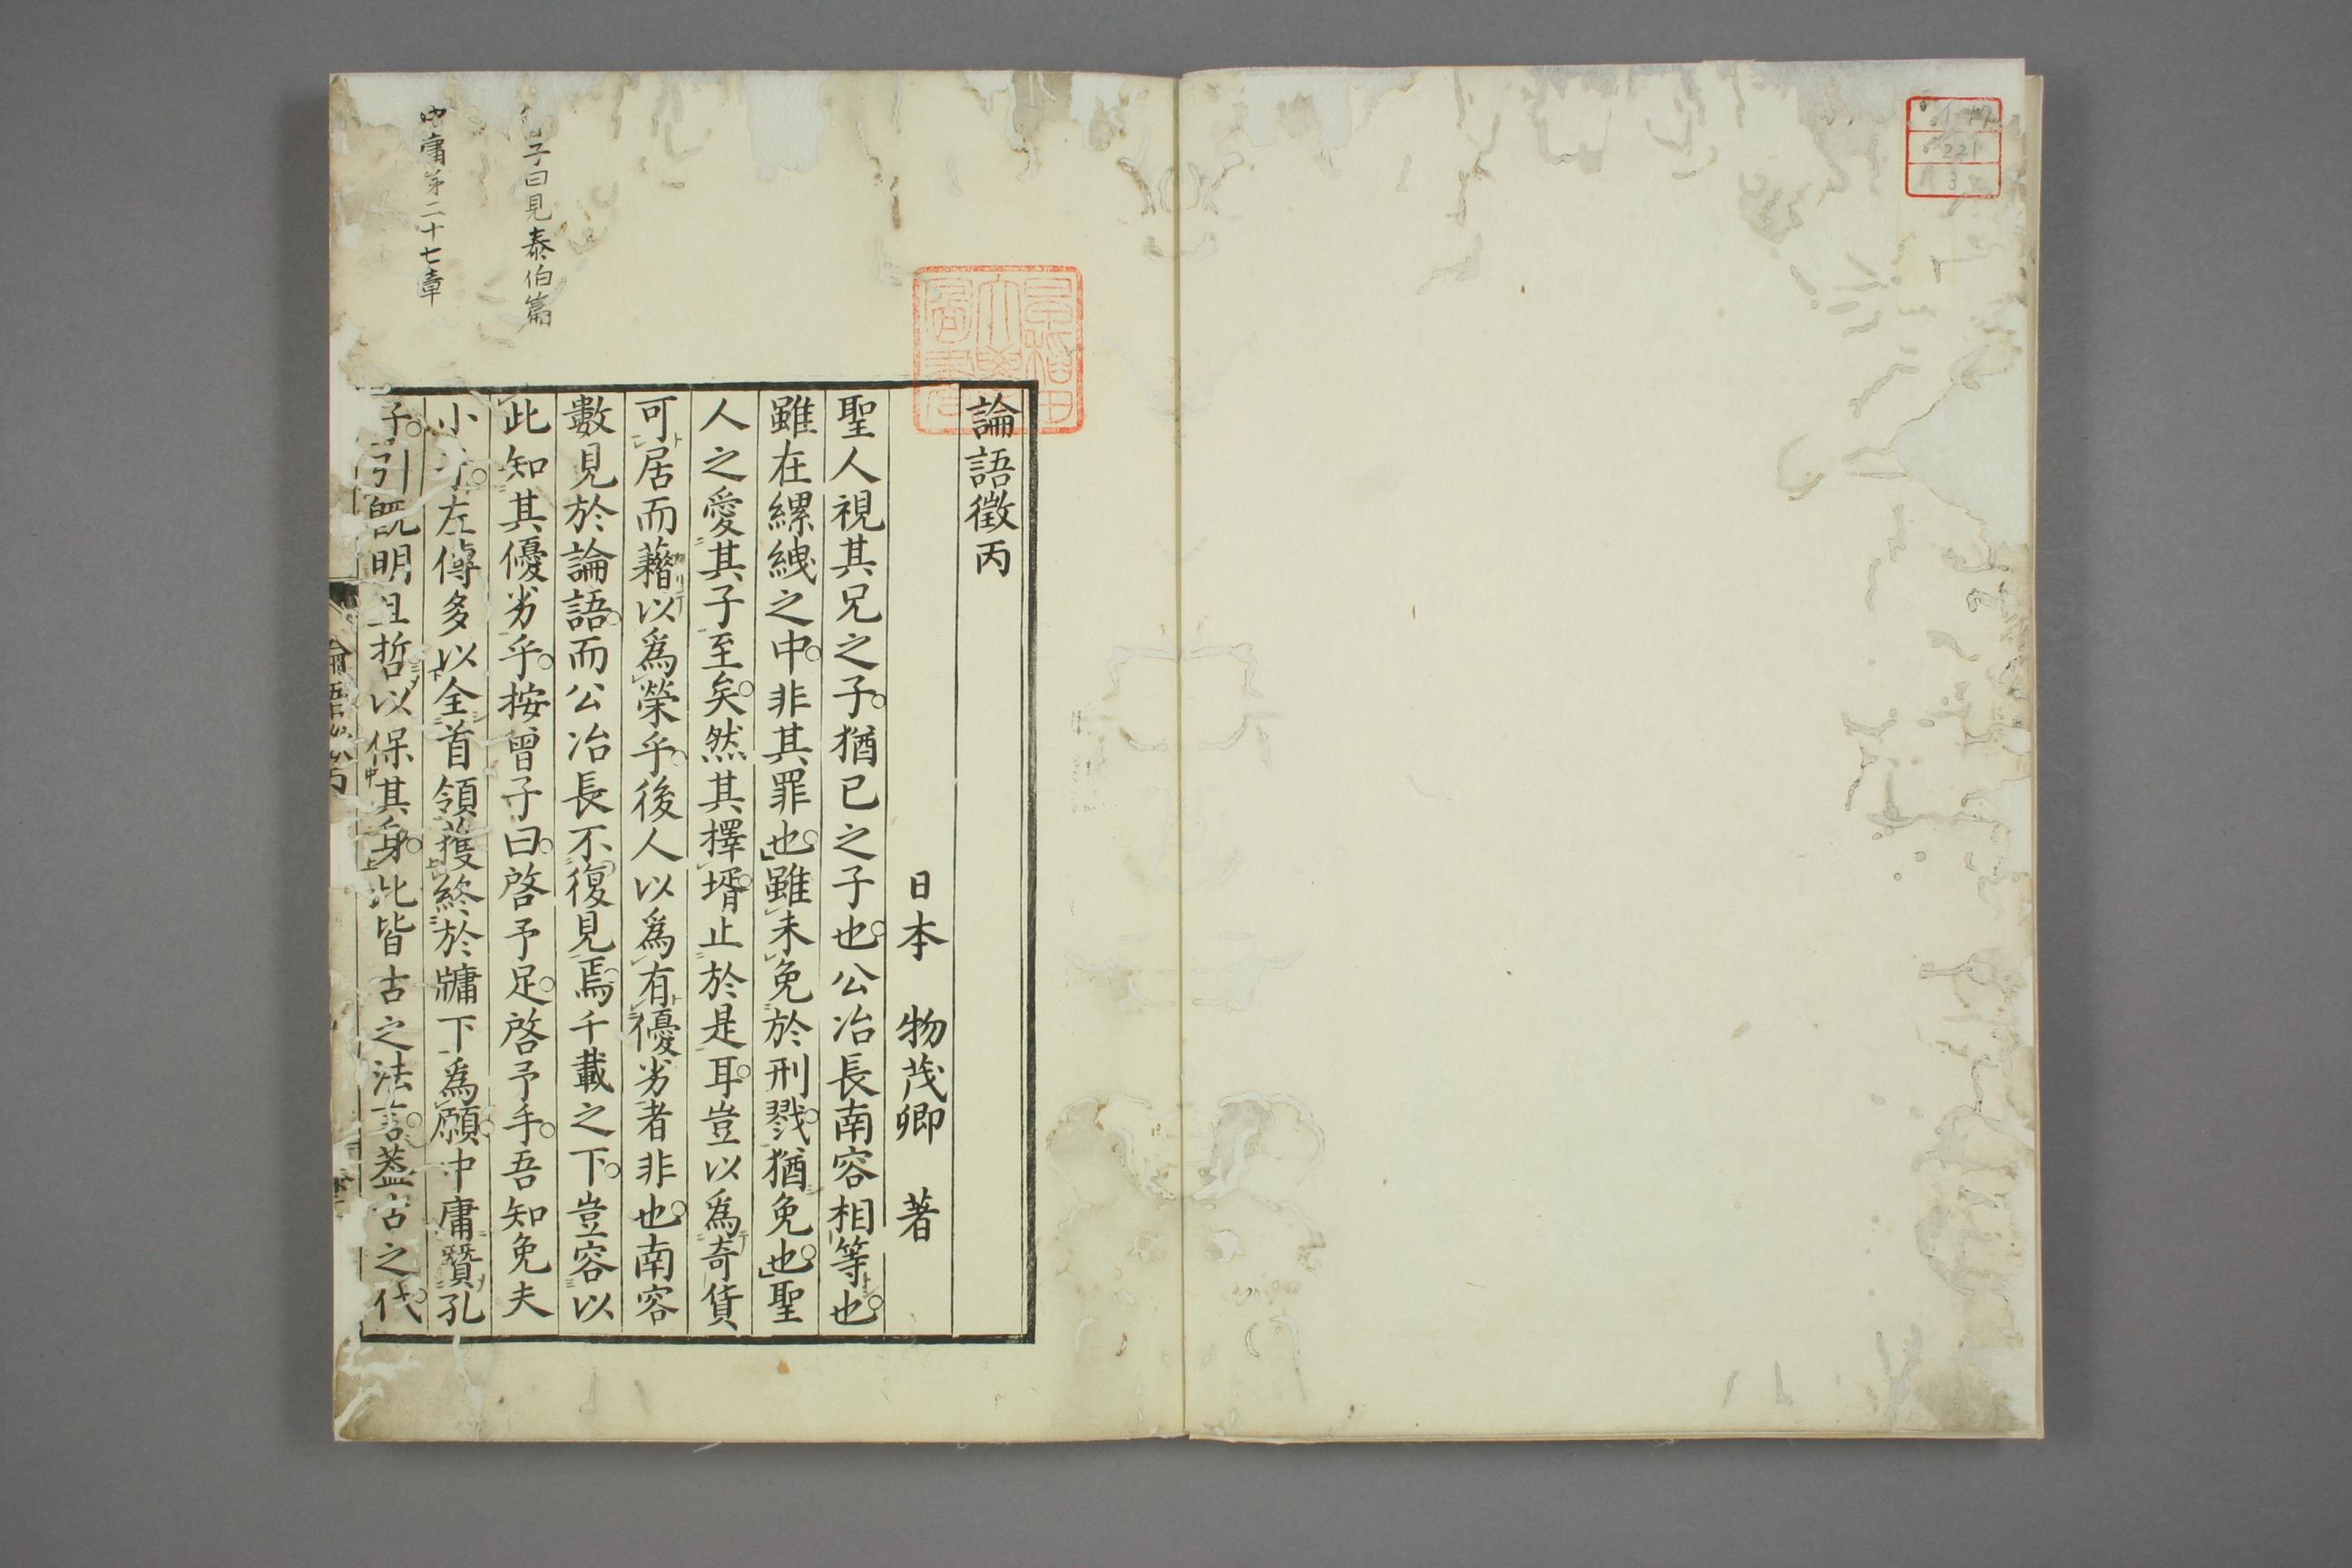 221
3
論語徵丙
日本 物茂卿 著
聖人視其兄之子。猶己之子也。公冶長南容相等也。
雖在縲絏之中。非其罪也。雖未免於刑戮。猶免也。聖
人之愛其子至矣。然其擇壻。止於是耳。豈以爲奇貨
可居而藉以爲榮乎。後人以爲有優劣者非也。南容
數見於論語。而公冶長不復見焉。千載之下。豈容以
此知其優劣乎。按曾子曰。啓予足。啓予手。吾知免夫
小子。左傳多以全首領獲終於牖下爲願。中庸贊孔
子。引既明且哲以保其身。此皆古之法言。蓋古之代
子曰見泰伯篇
中庸第二十七章